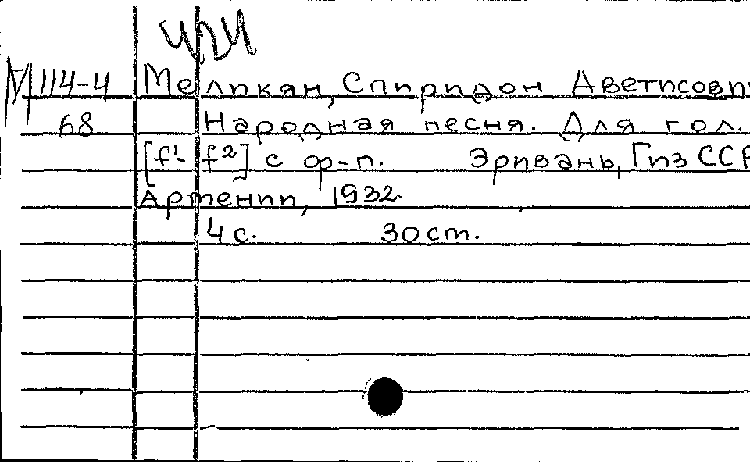 М 114-4 Меликян, Спиридон Аветисович
68 Народная песня. Для гол.
[f¹- f²] с ф-п. Эривань, Гиз ССР
Армении, 1932
4 с. 30 ст.